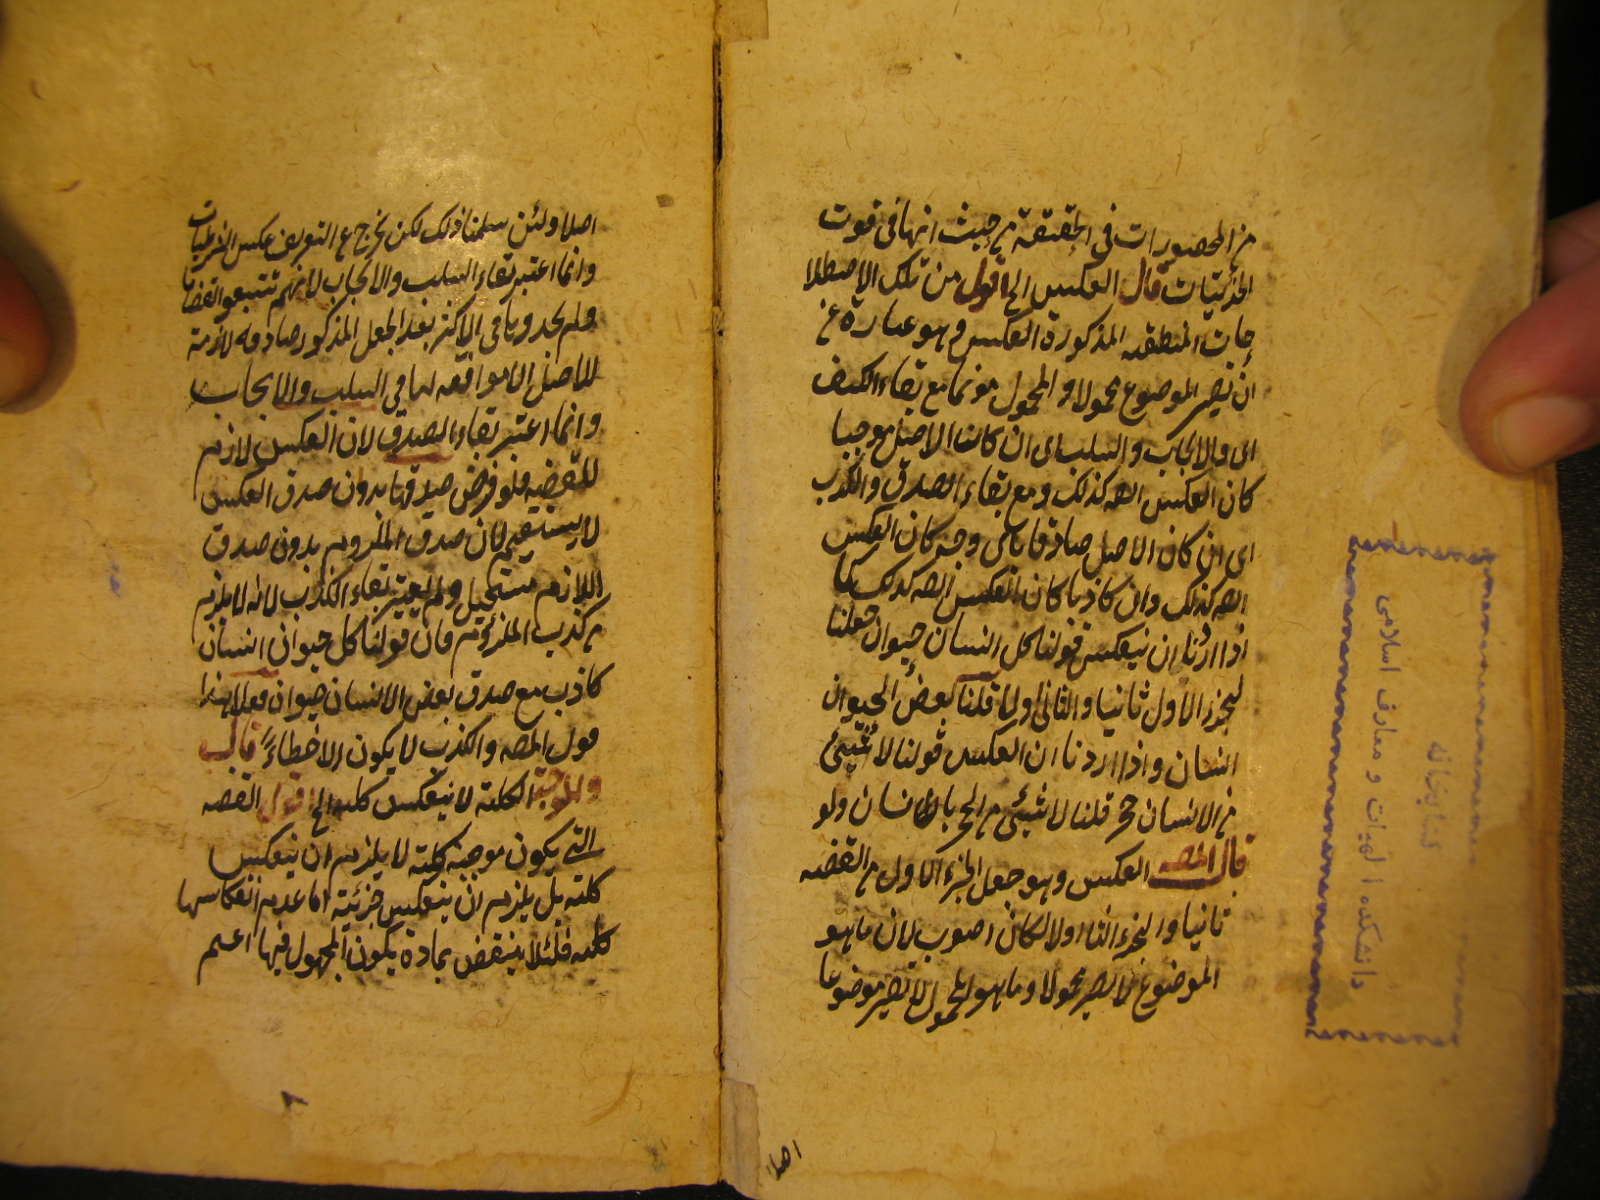 من المحصورات في الحقيقة من حيث انها في قوت
الجزئيات قال العكس الخ اقول من تلك الاصطلا
حات المنطقيه المذكورة العكس وهو عبارة عن
ان تصير الموضوع محمولا والمحمول موضوعا مع بقاء الكيف
اى والايجاب والسلب اى ان كان الاصل موجبا
كان العكس ايضه كذلك ومع بقاء الصدق والكذب
اى ان كان الاصل صادقا كان العكس
ايضه كذلك وان كاذبا كان العكس ايضه كذلك كما
اذا اردنا ان نعكس قولنا كل انسان حيوان جعلنا
الجزء الاول ثانيا والثانى اولا قلنا بعض الحيوان
انسان واذا اردنا ان العكس قولنا لا شيئ
من الانسان حجر قلنا لا شيئ من الحجر بانسان ولو
قال المصه العكس وهو جعل الجزء الاول من القضيه
ثانيا والجزء الثانى اولا لكان اصوب لان ما هو
الموضوع لا يصير محمولا وما هو المحمول لا يصير موضوعا
اصلا
اصلا ولئن سلمنا ذلك لكن يخرج عن التعريف عكس الشرطيات
وانما اعتبر بقاء السلب والايجاب لانهم تتبعوا القضايا
ولم يجدوها في الاكثر بعد الجعل المذكور صادقه لازمة
للاصل الا موافقه لها في السلب والايجاب
وانما اعتبر بقاء الصدق لان العكس لازم
للقضيه فلو فرض صدقها بدون صدق العكس
لا يستقيم لان صدق الملزوم بدون صدق
اللازم مستحيل ولم يعتبر بقاء الكذب لانه لا يلزم
من كذب الملزوم فان قولنا كل حيوان انسان
كاذب مع صدق بعض الانسان حيوان فعلا هذا
قول المصه والكذب لا يكون الا خطاء قال
والموجبة الكلية لا تنعكس كليه الخ اقول القضيه
التي يكون موجبه كلية لا يلزم ان ينعكس
كلية بل يلزم ان ينعكس جزئية اما عدم انعكاسها
كليه فلئلا ينتقض بمادة يكون المحمول فيها اعم
كتابخانه
دانشكده الهيات و معارف اسلامى